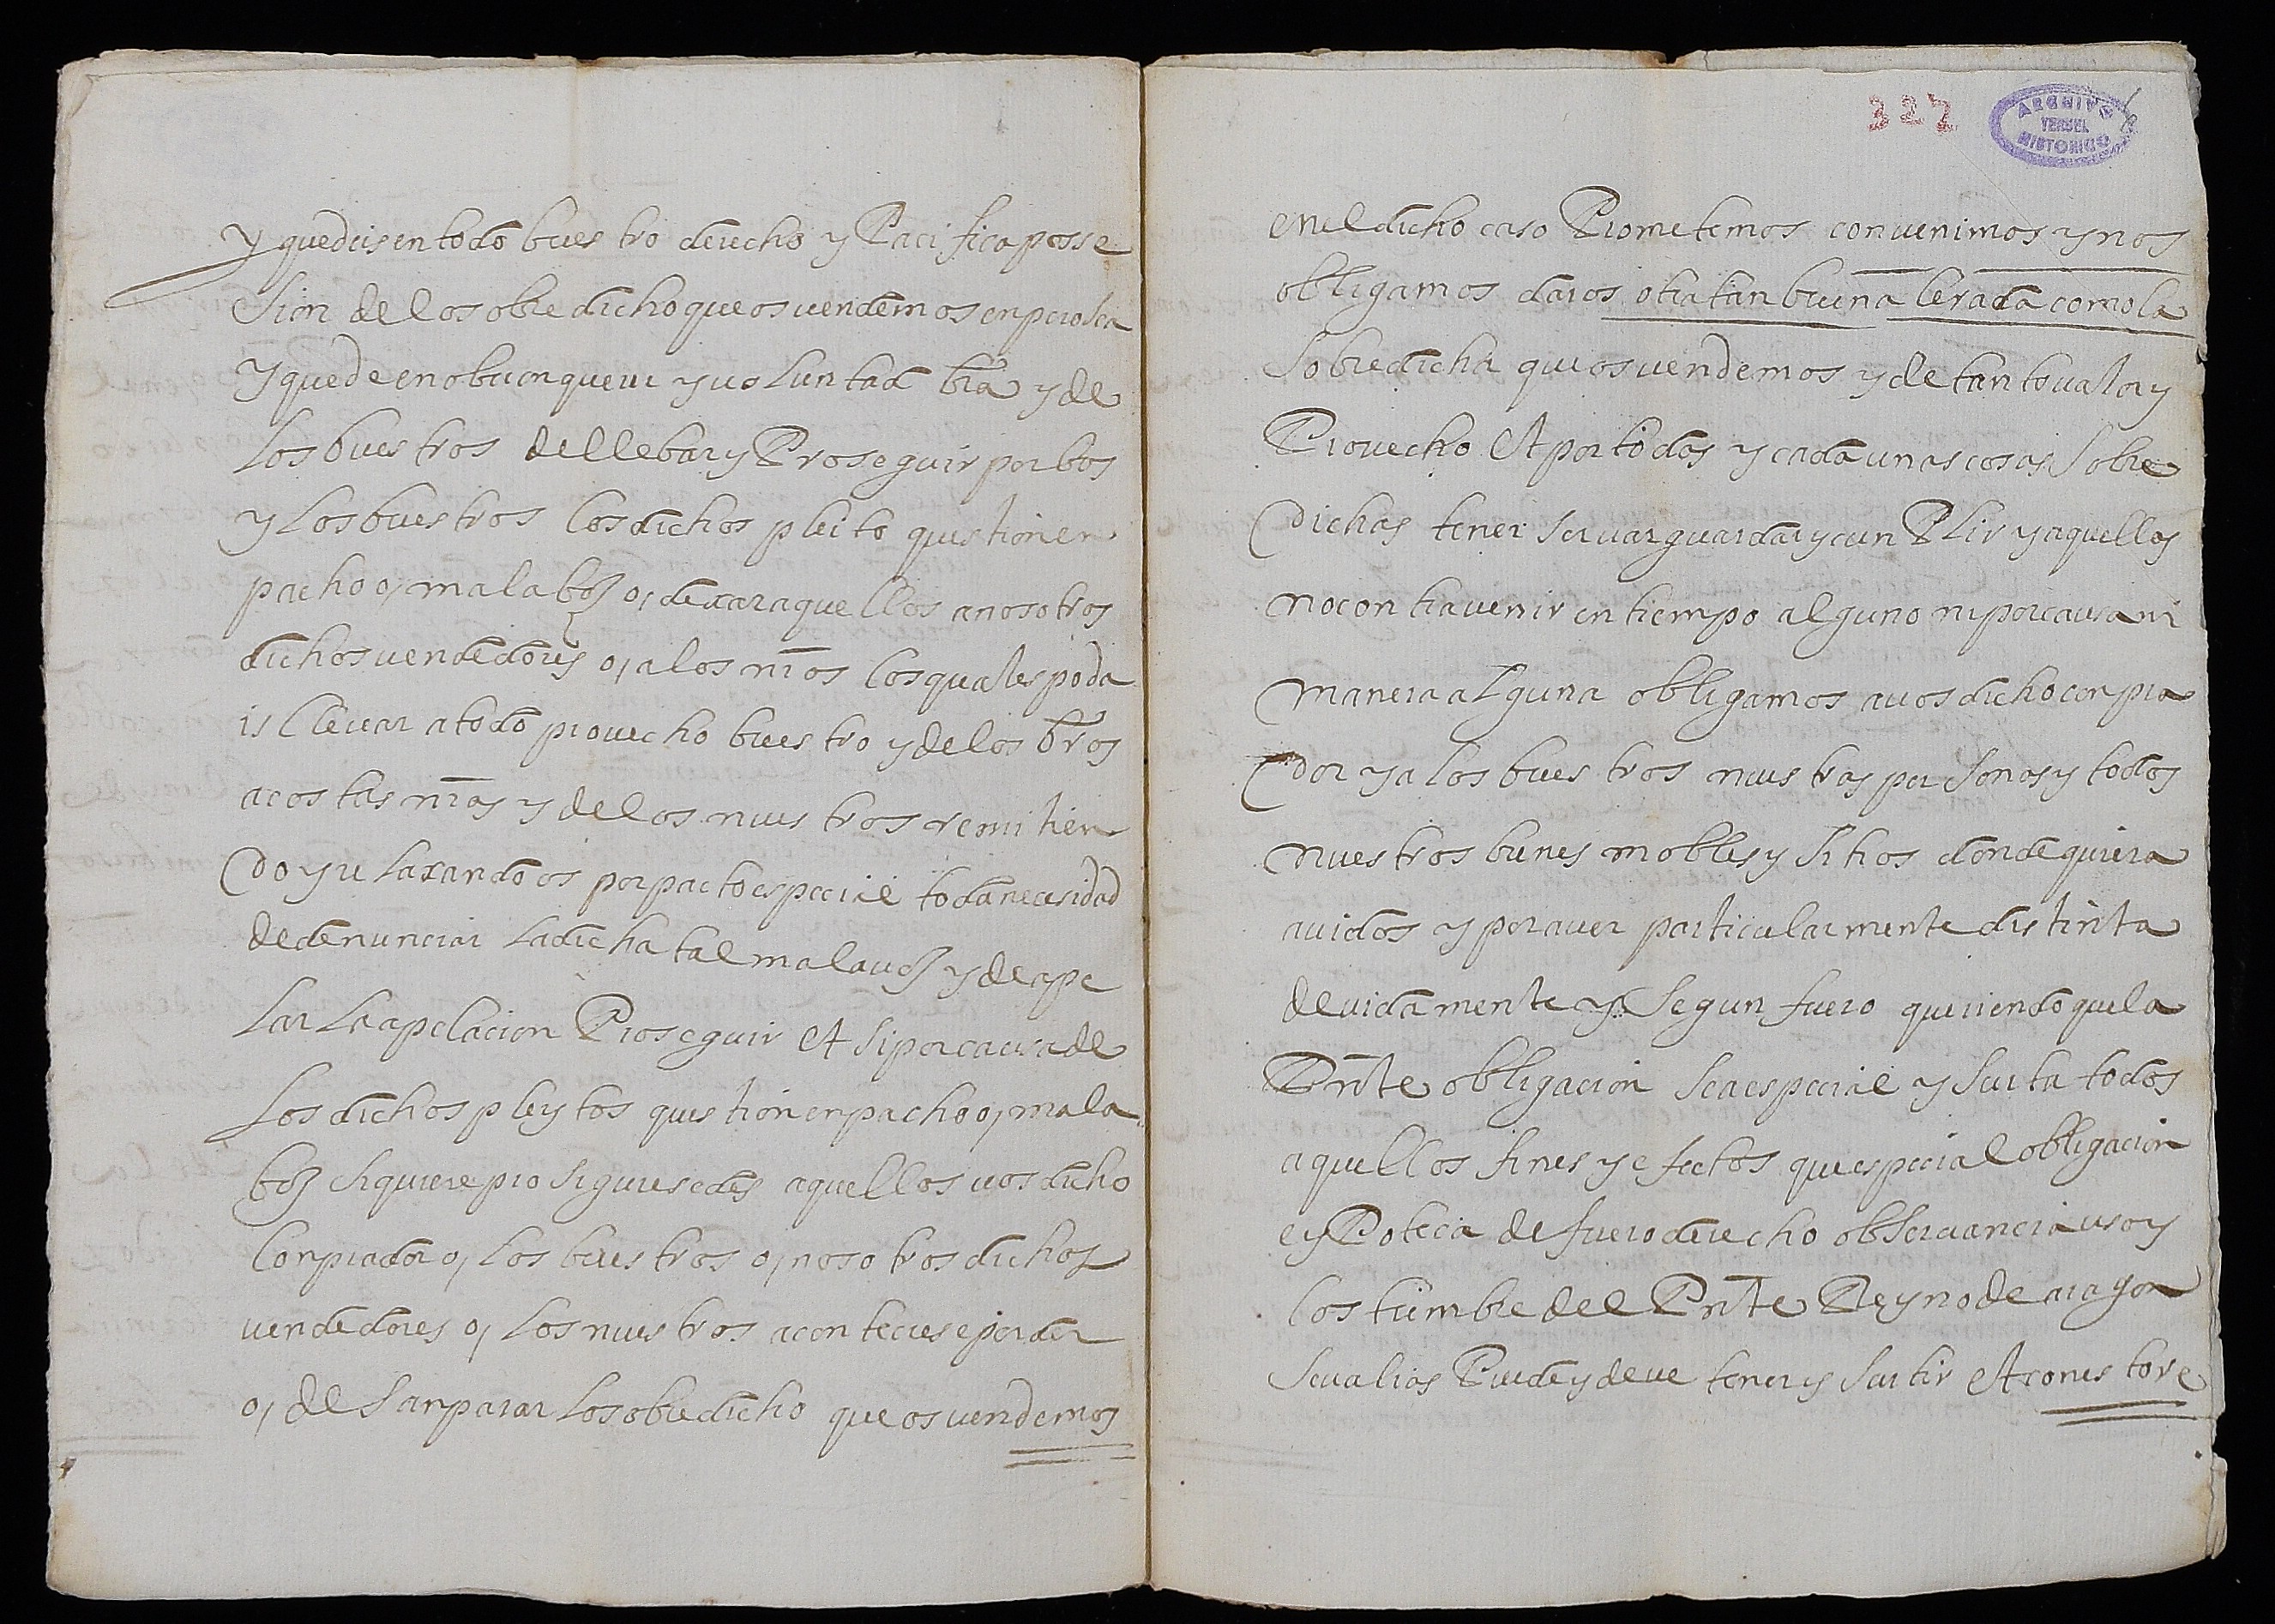 y quedeis en todo buestro derecho y Pacifica posse
sion de lo sobre dicho que os vendemos enpero sea
y quede en obcion querer y voluntad bra y de
los buestros de llebar y Proseguir por bos
y los buestros los dichos pleito question en
pacho o, mala boz o, dexar aquellos a nosotros
dichos vendedores o, a los nros los quales poda
is llevar a todo provecho buestro y de los bros
a costas nras y de los nuestros remitien
do y relaxandoos por pacto especial toda necesidad
de denunciar la dicha tal mala voz y de ape
lar la apelacion Proseguir et si por causa de
los dichos pleytos question enpacho o, mala
boz siquiere prosiguiesedes aquellos vos dicho
conprador o, los buestros o, nosotros dichos
vendedores o, los nuestros aconteciese perder
o, desanparar lo sobredicho que os vendemos
327
ARCHIVO
TERUEL
HISTORICO
en el dicho caso Prometemos convenimos y nos
obligamos daros otra tan buena Cerada como la
sobre dicha que os vendemos y de tanto valor y
Provecho Et por todas y cada unas cosas sobre
dichas tener servar guardar y cunPlir y aquellas
no contravenir en tiempo alguno ni por causa ni
manera alguna obligamos a vos dicho conpra
dor y a los buestros nuestras personas y todos
nuestros bienes mobles y sitios donde quiera
avidos y por aver particularmente distinta
devidamente y segun fuero queriendo que la
Pnte obligacion sea especial y surta todos
aquellos fines y efectos que especial obligacion
e yPoteca de fuero derecho observancia uso y
costumbre del Pnte Reyno de aragon
seu alias Puede y deve tener y surtir Et con esto re